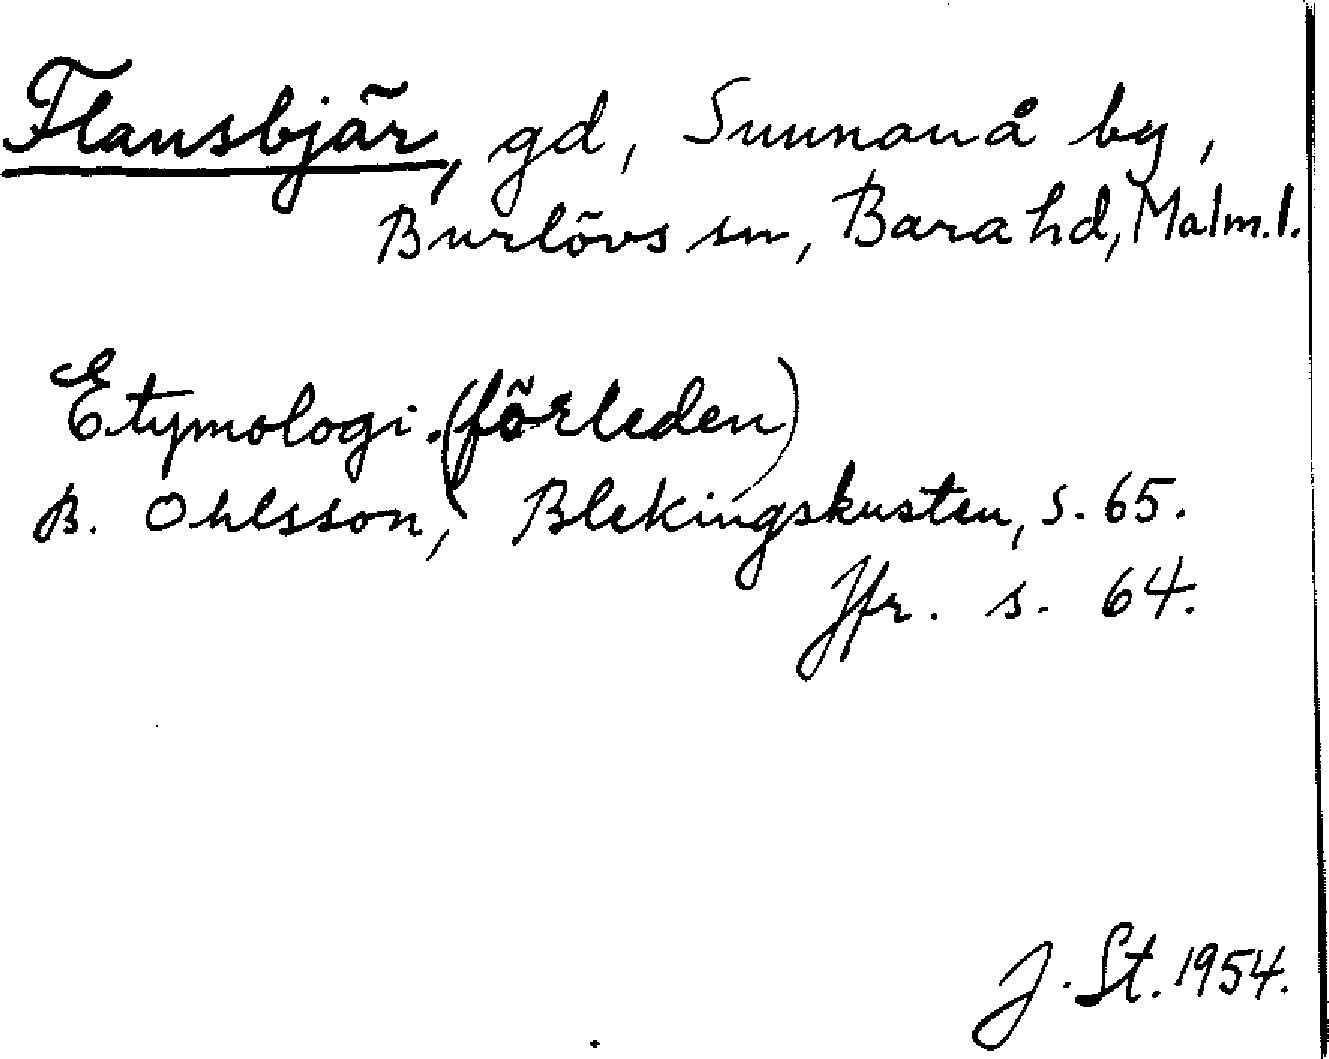 Flansbjär, gd, Sunnanå by,
Burlövs sn, Bara hd, Malm.l.
Etymologi. (förleden)
B. Ohlsson, Blekingskusten, s. 65.
Jfr. s. 64.
J. St. 1954.